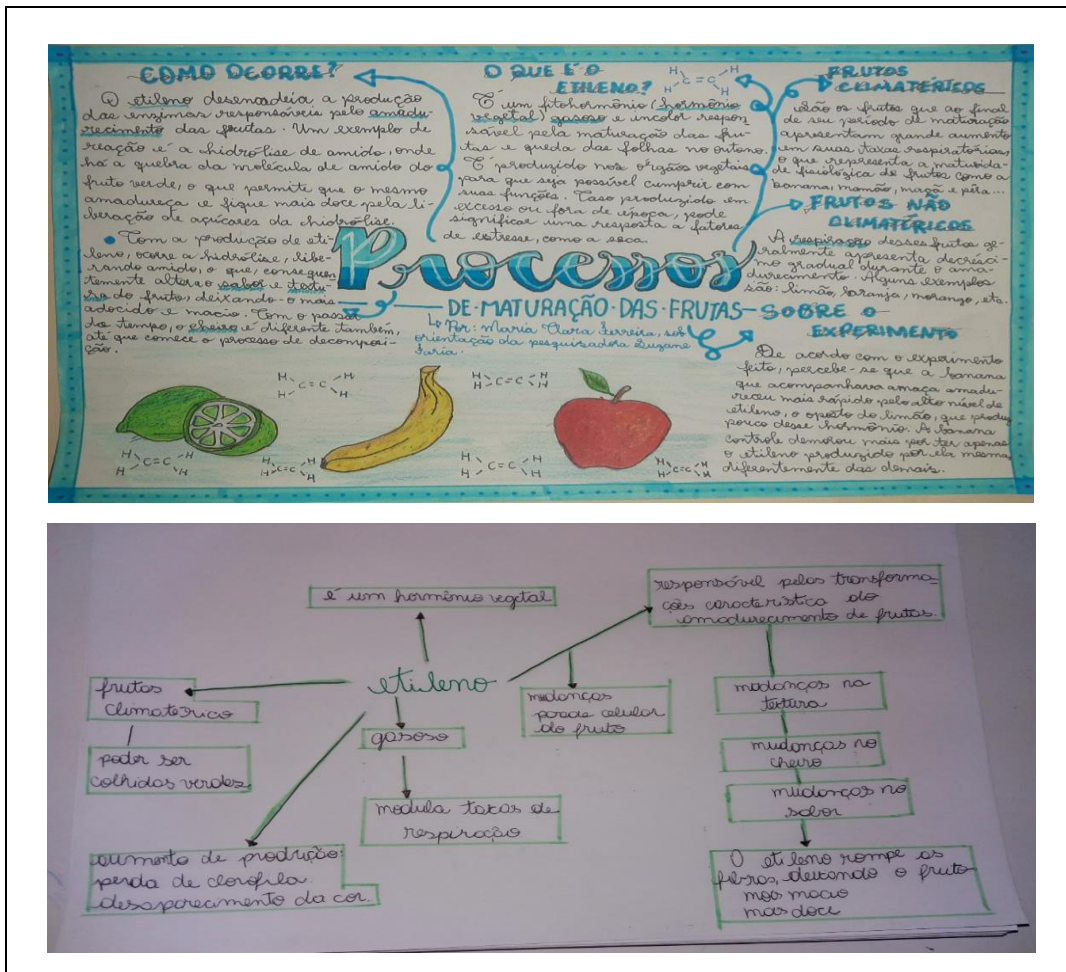 COMO OCORRE?
O etileno desencadeia a produção
das enzimas responsáveis pelo amadu-
recimento das frutas. Um exemplo de
reação é a hidrólise de amido, onde
há a quebra da molécula de amido do
fruto verde, o que permite que o mesmo
amadureça e fique mais doce pela li-
beração de açúcares da hidrólise.
Com a produção de eti-
leno, ocorre a hidrólise, libe-
rando amido, o que, consequen-
temente altera o sabor e textu-
ra do fruto, deixando-o mais
adocicado e macio. Com o passar
do tempo, o cheiro é diferente também,
até que comece o processo de decomposi-
ção.
O QUE É O
ETILENO?
H H
C=C
H H
É um fitohormônio (hormônio
vegetal) gasoso e uncolor respon
sável pela maturação das fru-
tas e queda das folhas no outono.
É produzido nos órgãos vegetais
para que seja possível cumprir com
suas funções. Caso produzido em
excesso ou fora de época, pode
significar uma resposta a fatores
de estresse, como a seca.
FRUTOS
CLIMATÉRICOS
são os frutos que ao final
de seu período de maturação
apresentam grande aumento
em suas taxas respiratórias,
o que representa a maturida-
de fisiológica de frutos como a
banana, mamão, maçã e pêra...
FRUTOS NÃO
CLIMATÉRICOS
A respiração desses frutos ge-
ralmente apresenta decresci-
mo gradual durante o ama-
durecimento. Alguns exemplos
são: limão, laranja, morango, etc.
Processos
DE MATURAÇÃO DAS FRUTAS
Por: Maria Clara Ferreira, sob
orientação da pesquisadora Suzane
Faria.
SOBRE O
EXPERIMENTO
De acordo com o experimento
feito, percebe-se que a banana
que acompanhava a maça amadu-
receu mais rápido pelo alto nível de
etileno, o oposto do limão, que produz
pouco desse hormônio. A banana
controle demorou mais por ter apenas
o etileno produzido por ela mesma,
diferentemente das demais.
H H
C=C
H H
H H
C=C
H H
H H
C=C
H H
H H
C=C
H H
H H
C=C
H H
H H
C=C
H H
é um hormônio vegetal
responsável pelas transforma-
ções característica do
amadurecimento de frutas.
etileno
frutos
climatérico
poder ser
colhidos verdes
gasoso
modula taxas de
respiração
mudanças
parede celular
do fruto
mudanças na
textura
mudanças no
cheiro
mudanças no
sabor
O etileno rompe as
fibras, deixando o fruto
mais macio
mas doce
aumento de produção:
perda de clorofila.
desaparecimento da cor.